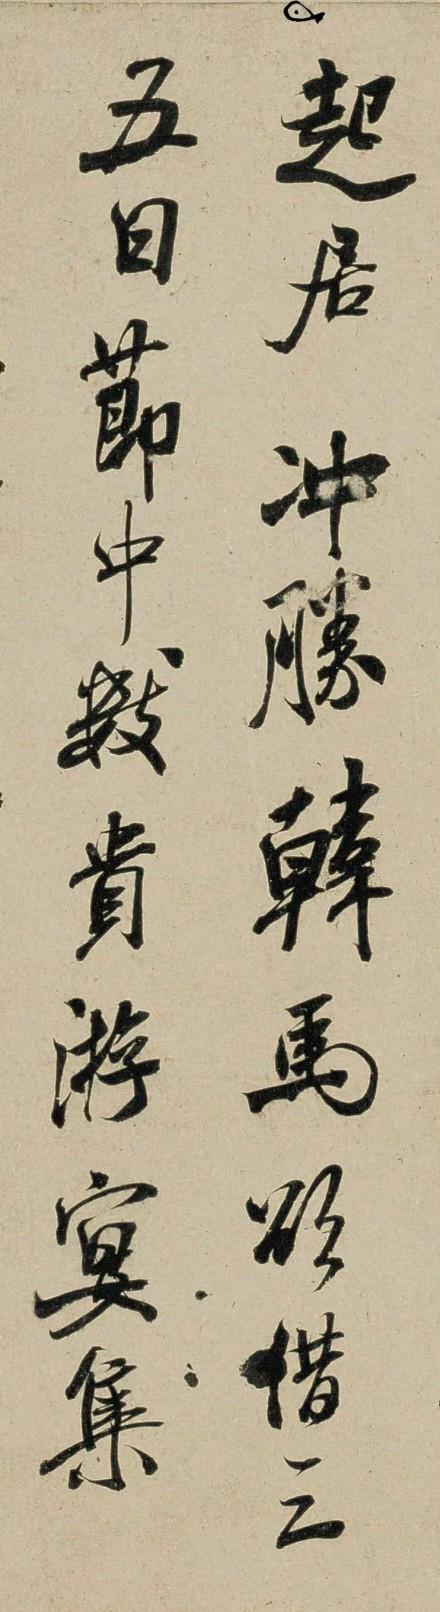 起居冲勝韓馬欲借三
五日節中數貴游宴集